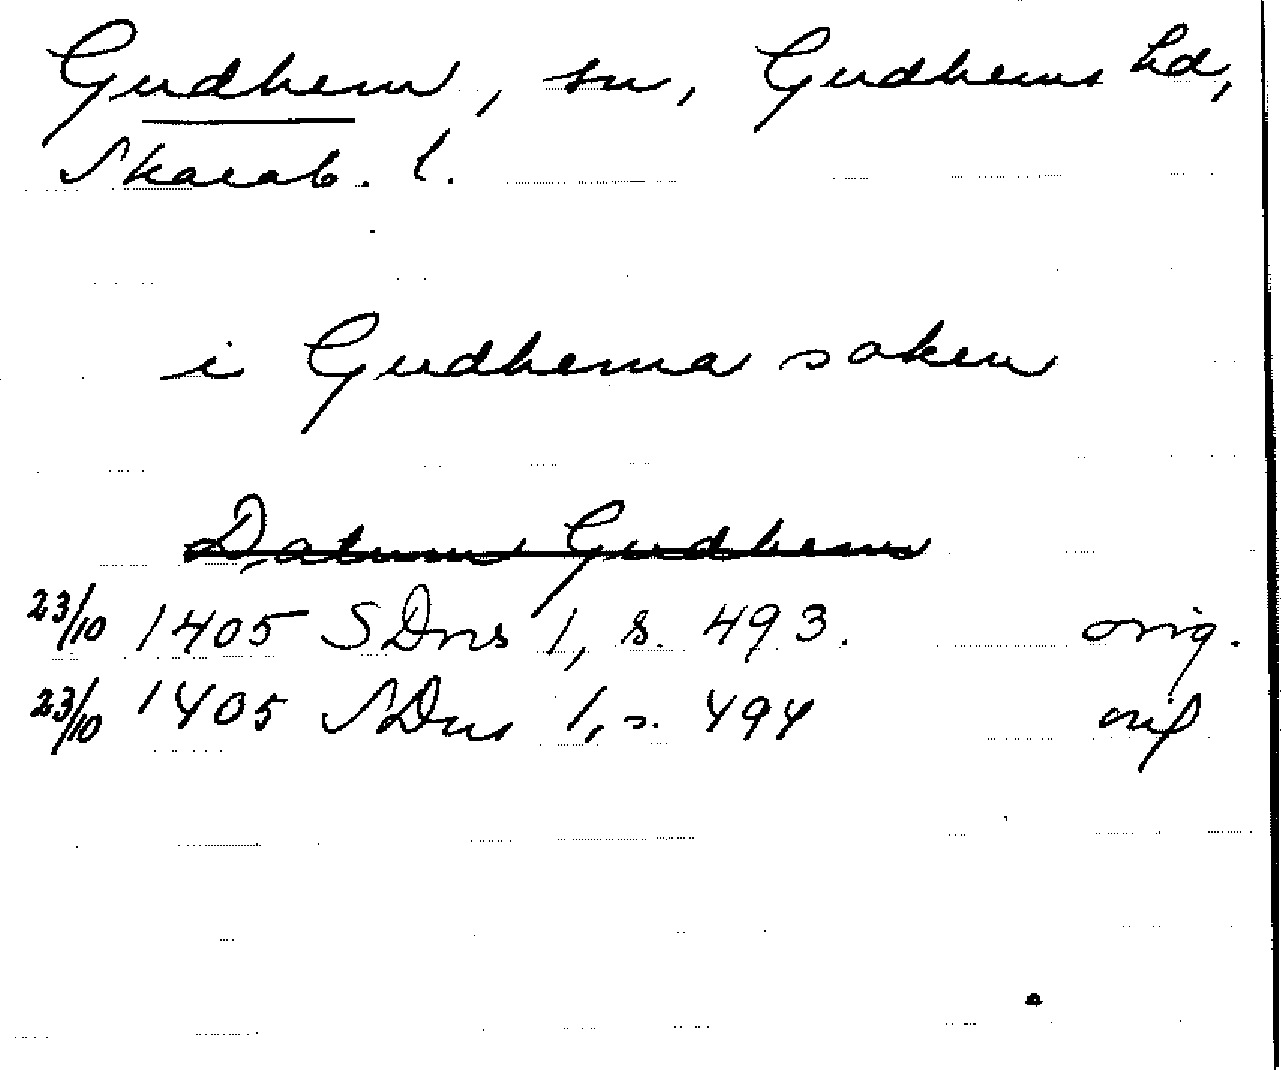 Gudhem, sn, Gudhems hd,
Skarab. l.
i Gudhema soken
Datum Gudhem
23/10 1405 SDns 1, s. 493. orig.
23/10 1405 SDns 1, s. 494 orig